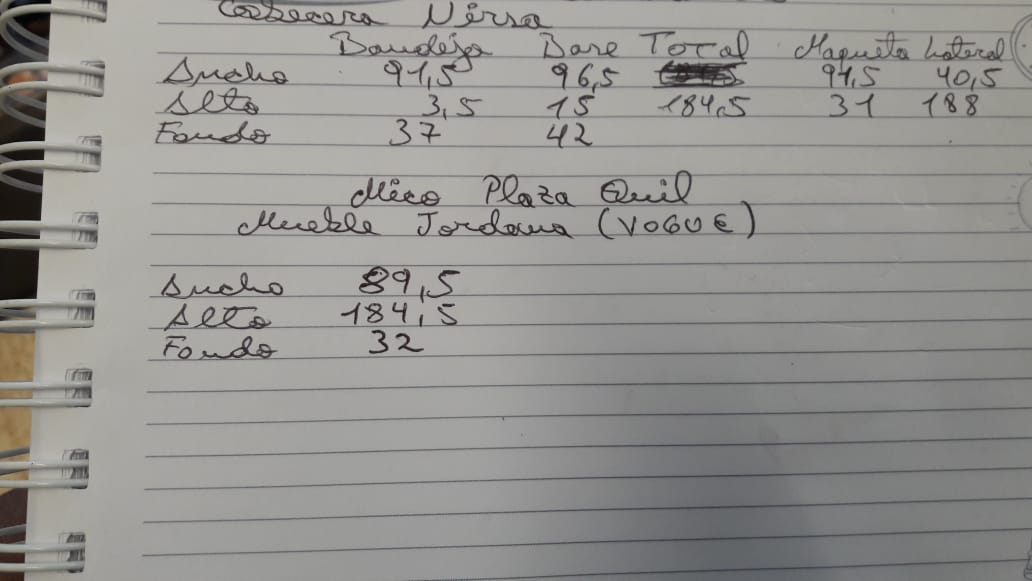 Cabecera Nirsa
Bandeja Base Total Maqueta Lateral
Ancho 91,5 96,5 91,5 40,5
Alto 3,5 15 184,5 31 188
Fondo 37 42
Mico Plaza Quil
Mueble Jordana (VOGUE)
Ancho 89,5
Alto 184,5
Fondo 32